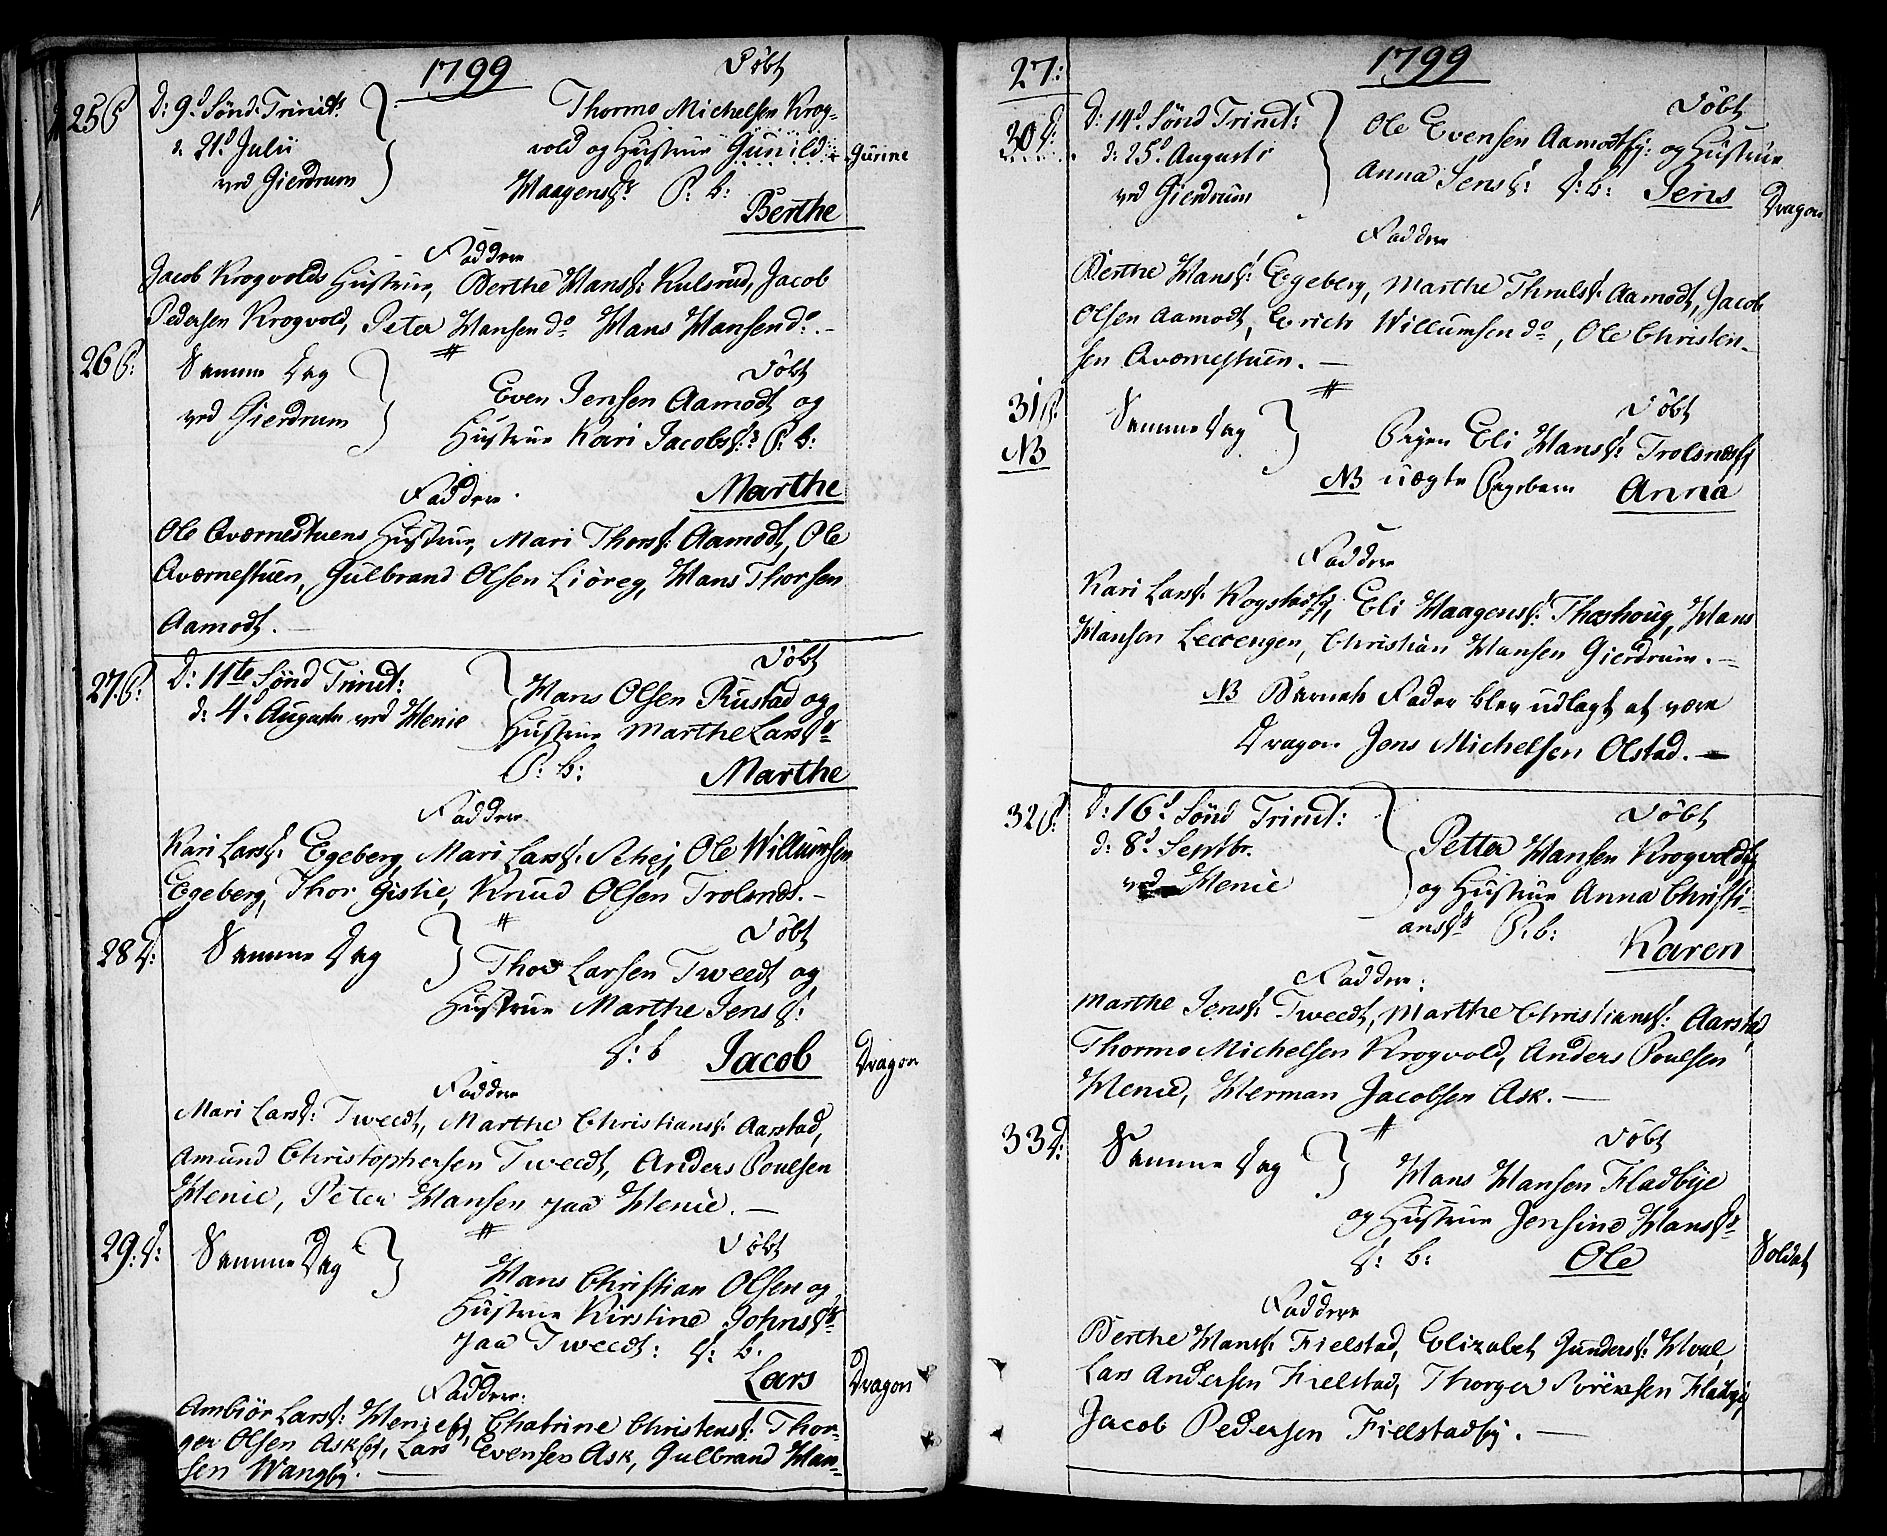 1799
Döbt
25 P: D: 9d Sönd. Trinit:
Thormo Michelsen Krog-
d. 21d Julii
vold og Hustrue Gunild Gunne
ved Gierdrum
Haagensd: P: b:
Berthe
Faddere
Jacob Krogvolds Hustrue, Berthe Hansd: Kulsrud, Jacob
Pedersen Krogvold, Peter Hansen do Hans Hansen do. -
26 P: Samme Dag
Döbt
ved Gierdrum
Even Jensen Aamodt og
Hustrue Kari Jacobsd: P: b:
Marthe
Faddere
Ole Qværnestuens Hustrue, Mari Thorsd: Aamodt, Ole
Qværnestuen, Gulbrand Olsen Liöreg, Hans Thorsen
Aamodt. -
27 P: D: 11te Sönd Trinit:
Döbt
d: 4d Augusti ved Henie
Hans Olsen Rustad og
Hustrue Marthe Larsd:
P: b:
Marthe
Faddere
Kari Larsd: Egeberg, Mari Larsd: Ask, Ole Willumsen
Egeberg, Thor Gistie, Knud Olsen Trolsnds. -
28 D: Samme Dag
Döbt
Thor Larsen Tweedt og
Hustrue Marthe Jensd:
D: b
Jacob
Dragon
Faddere
Mari Larsd: Tweedt, Marthe Christiansd: Aarstad,
Amund Christophersen Tweedt, Anders Poulsen
Henie, Peter Hansen paa Henie. -
29: D: Samme Dag
Döbt
Hans Christian Olsen og
Hustrue Kirstine Johnsd:
paa Tweedt: D: b.
Lars
Dragon
Faddere:
Ambiör Larsd: Henieej, Chatrine Christensd: Thor-
ger Olsen Askej, Lars Evensen Ask, Gulbrand Han-
sen Wangej. -
27:
1799
30 D: D: 14d Sönd Trinit:
Döbt
d: 25d Augusti
Ole Evensen Aamodtej: og Hustrue
ved Gierdrum
Anna Jensd: D: b: Jens
Dragon
Faddere
Berthe Hansd: Egeberg, Marthe Thrulsd: Aamodt, Jacob
Olsen Aamodt, Erich Willumsen do, Ole Christen-
sen Qværnestuen. -
31 P: Samme Dag
NB
Döbt
Pigen Eli Hansd: Trolsnesej
NB uægte Pigebarn Anna
Faddere
Kari Larsd: Rogstadej, Eli Haagensd: Thoshoug, Hans
Hansen Lecwengen, Christian Hansen Gierdrum. -
NB Barnets Fader blev udlagt at være
Dragon Jens Michelsen Olstad. -
32 P: D: 16d Sönd Trinit:
Döbt
d: 8d Septbr.
Petter Hansen Krogvoldej
ved Henie
og Hustrue Anna Christi-
ansd: P: b:
Karen
Faddere:
Marthe Jensd: Tweedt, Marthe Christiansd: Aarstad,
Thormo Michelsen Krogvold, Anders Poulsen
Henie, Herman Jacobsen Ask. -
33 D: Samme Dag
Döbt
Hans Hansen Fladbye
og Hustrue Jensine Hansd:
D: b:
Ole
Soldat
Faddere
Berthe Hansd: Fielstad, Elizabet Gundersd: Hval,
Lars Andersen Fielstad, Thorger Sörensen Fladbye,
Jacob Pedersen Fielstadej. -